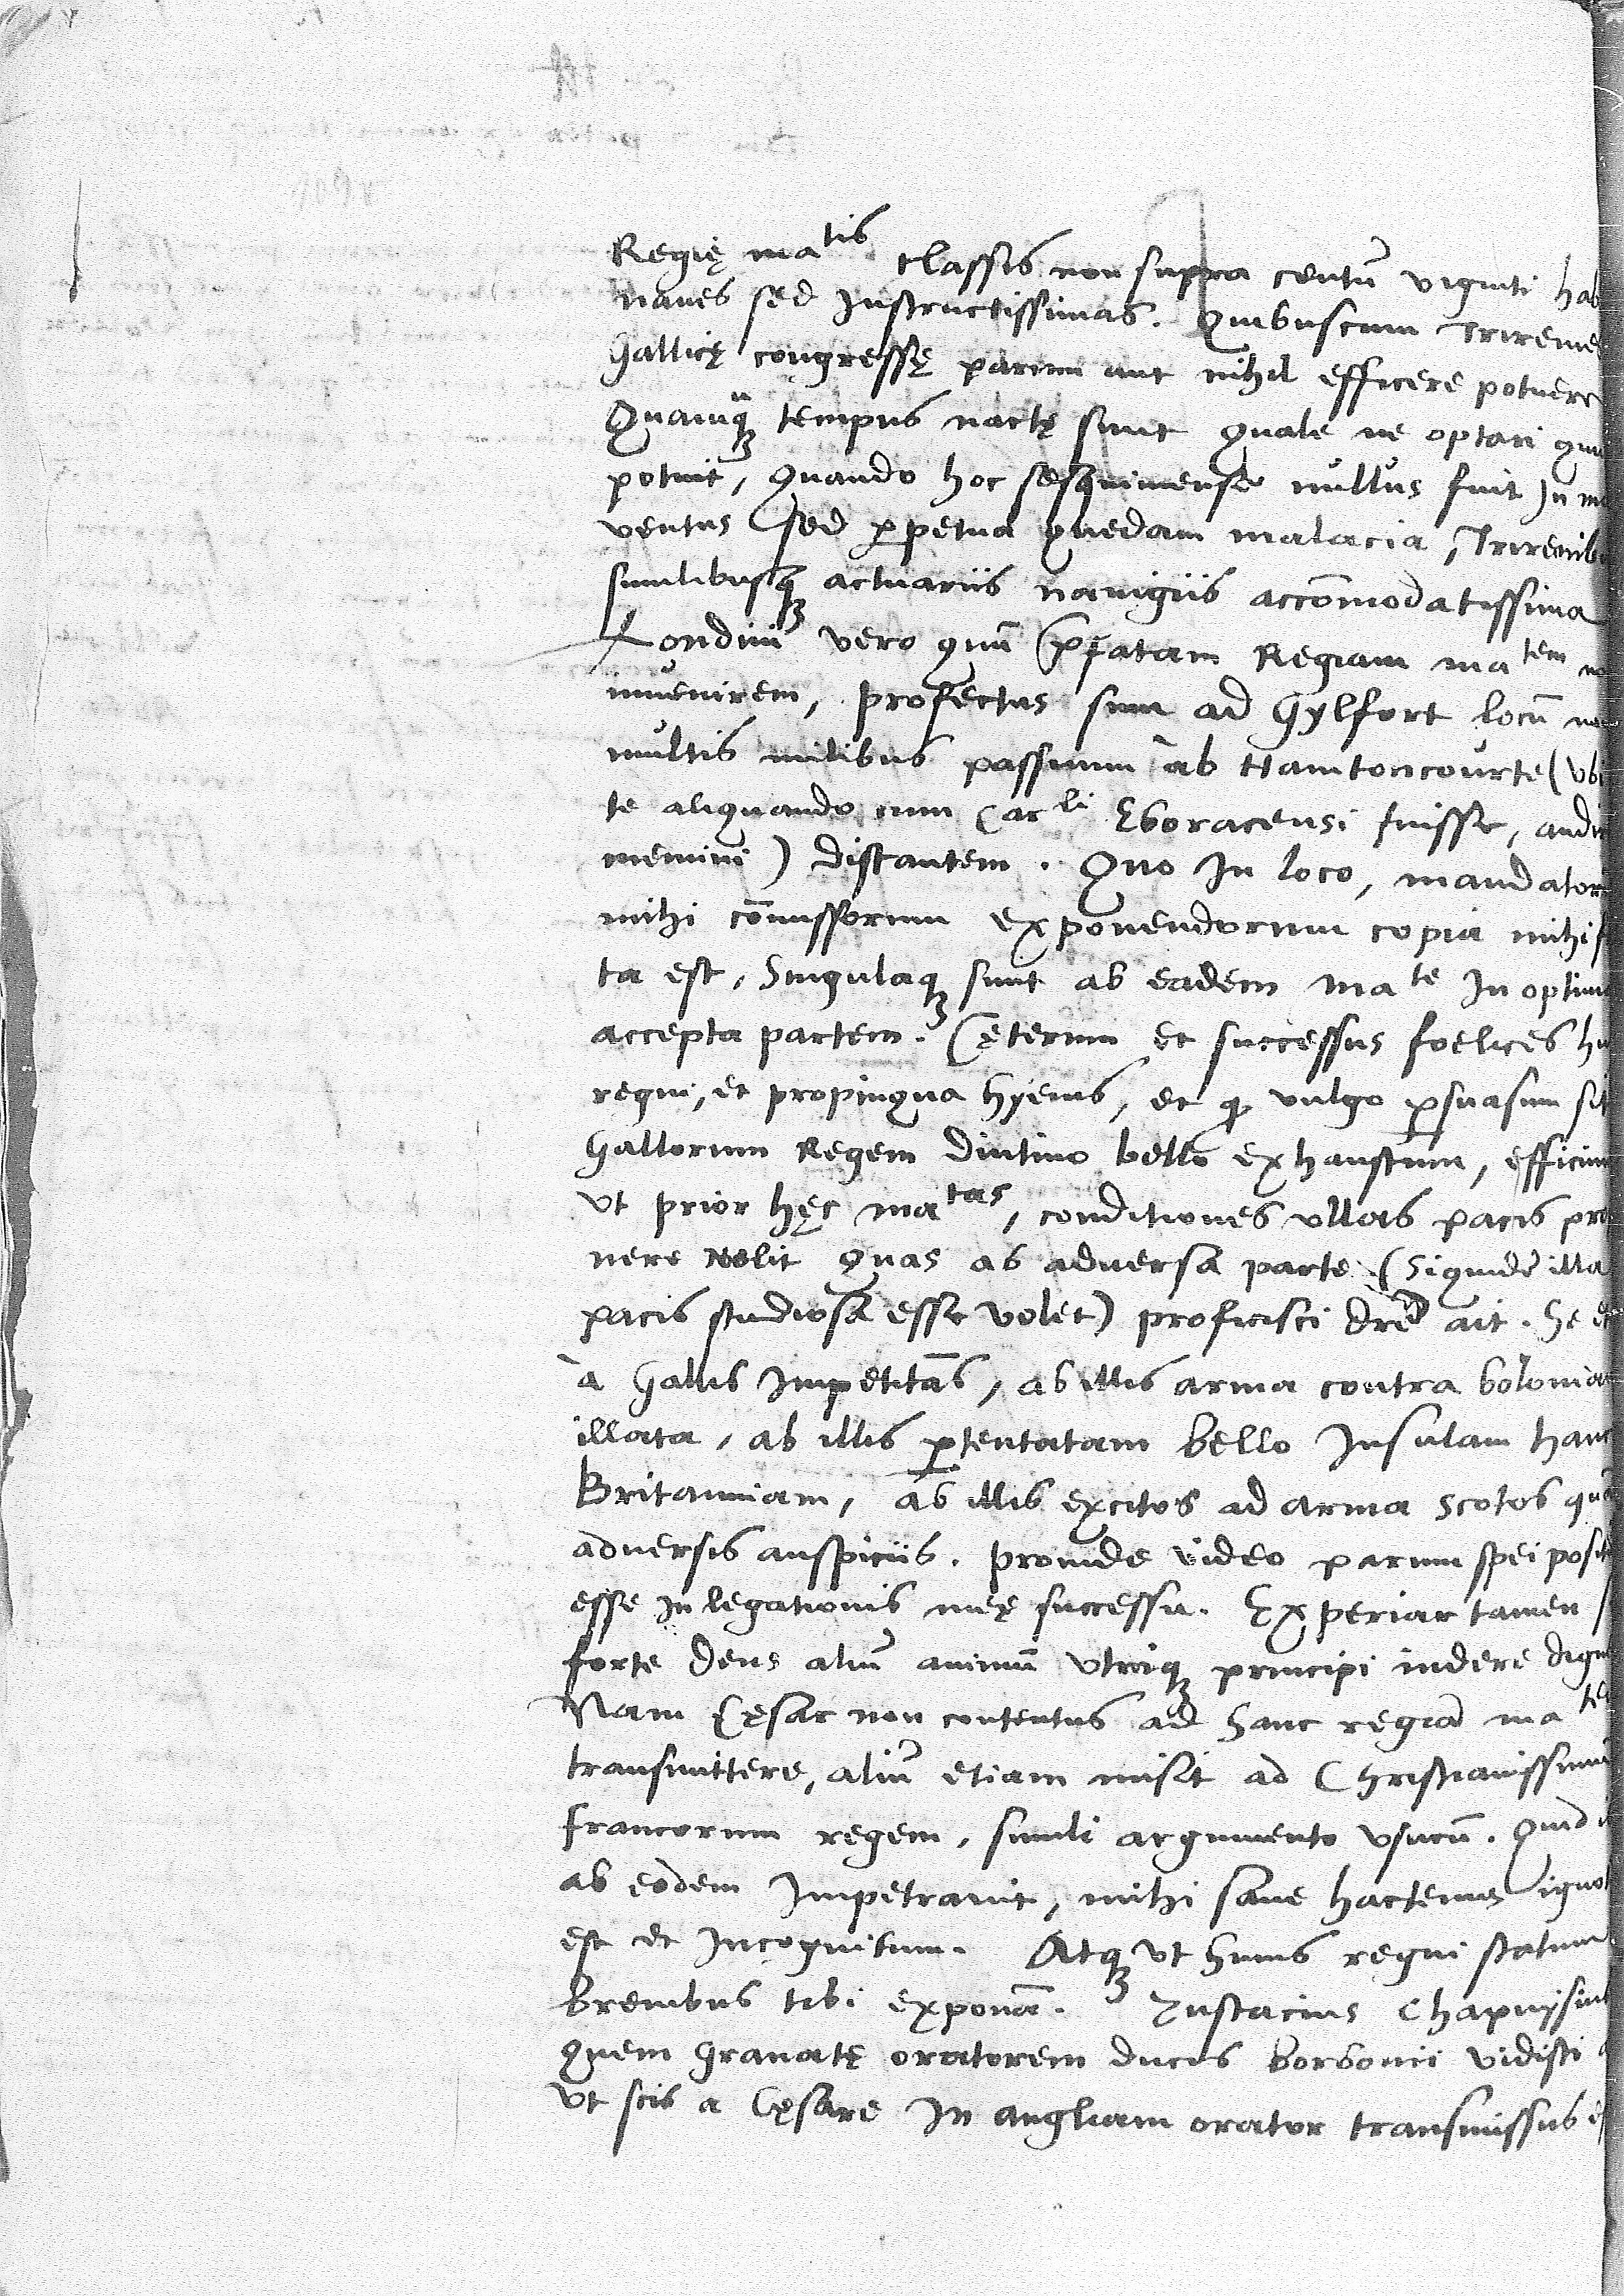 Regię ma^tis classis non supra centū viginti hab
naues sed Instructissimas. Quibuscum Trireme
Gallicę congressę parum aut nihil efficere potuere
Quanq̄ʒ tempus nactę sunt quale ne optari qui
potuit, quando hoc sesquimense nullus fuit In ma
ventus sed ꝑpetua quedam malacia, Triremib
similibusqʒ actuariis nauigiis accōmodatissima
Londini vero quū p̄fatam Regiam ma^tem no
inuenirem, profectus sum ad Gylfort locū no
multis milibus passuum àb Hamtoncourte (vbi
te aliquando cum Car^li Eboracensi fuisse, audi
memini) distantem. Quo In loco, mandator
mihi cōmissorum exponendorum copia mihi f
ta est, Singulaqʒ sunt ab eadem ma^te In optim
accepta partem. Cęterum et successus foelices hu
regni, et propinqua hyems, et ꝙ vulgo ꝑsuasum sit
Gallorum Regem diutino bello exhaustum, efficiun
vt prior hęc ma^tas, conditiones vllas pacis pro
nere nolit quas ab aduersa parte (Siquidē illa
pacis studiosa esse volet) proficisci drē ait. Se e
à Gallis Impetitās, ab illis arma contra bolonia
illata, ab illis ꝑtentatam bello Insulam hanc
Britanniam, ab illis excitos ad arma Scotos quā
aduersis auspiciis. proinde video parum spei posit
esse In legationis meę successu. Experiar tamen s
forte deus aliū animū vtriqʒ principi indere dign
Nam Cęsar non contentus ad hanc regiā ma^te
transmittere, aliū etiam misit ad Christianissimū
francorum regem, simili argumento vsurū. quid i
ab eodem Impetrauit, mihi sane hactenus ignot
est et Incognitum. Atqʒ vt huius regni statum
breuibus tibi exponā. Eustacius Chapuysius
quem Granatę oratorem ducis borbonii vidisti
vt scis a Cęsare In angliam orator transmissus e